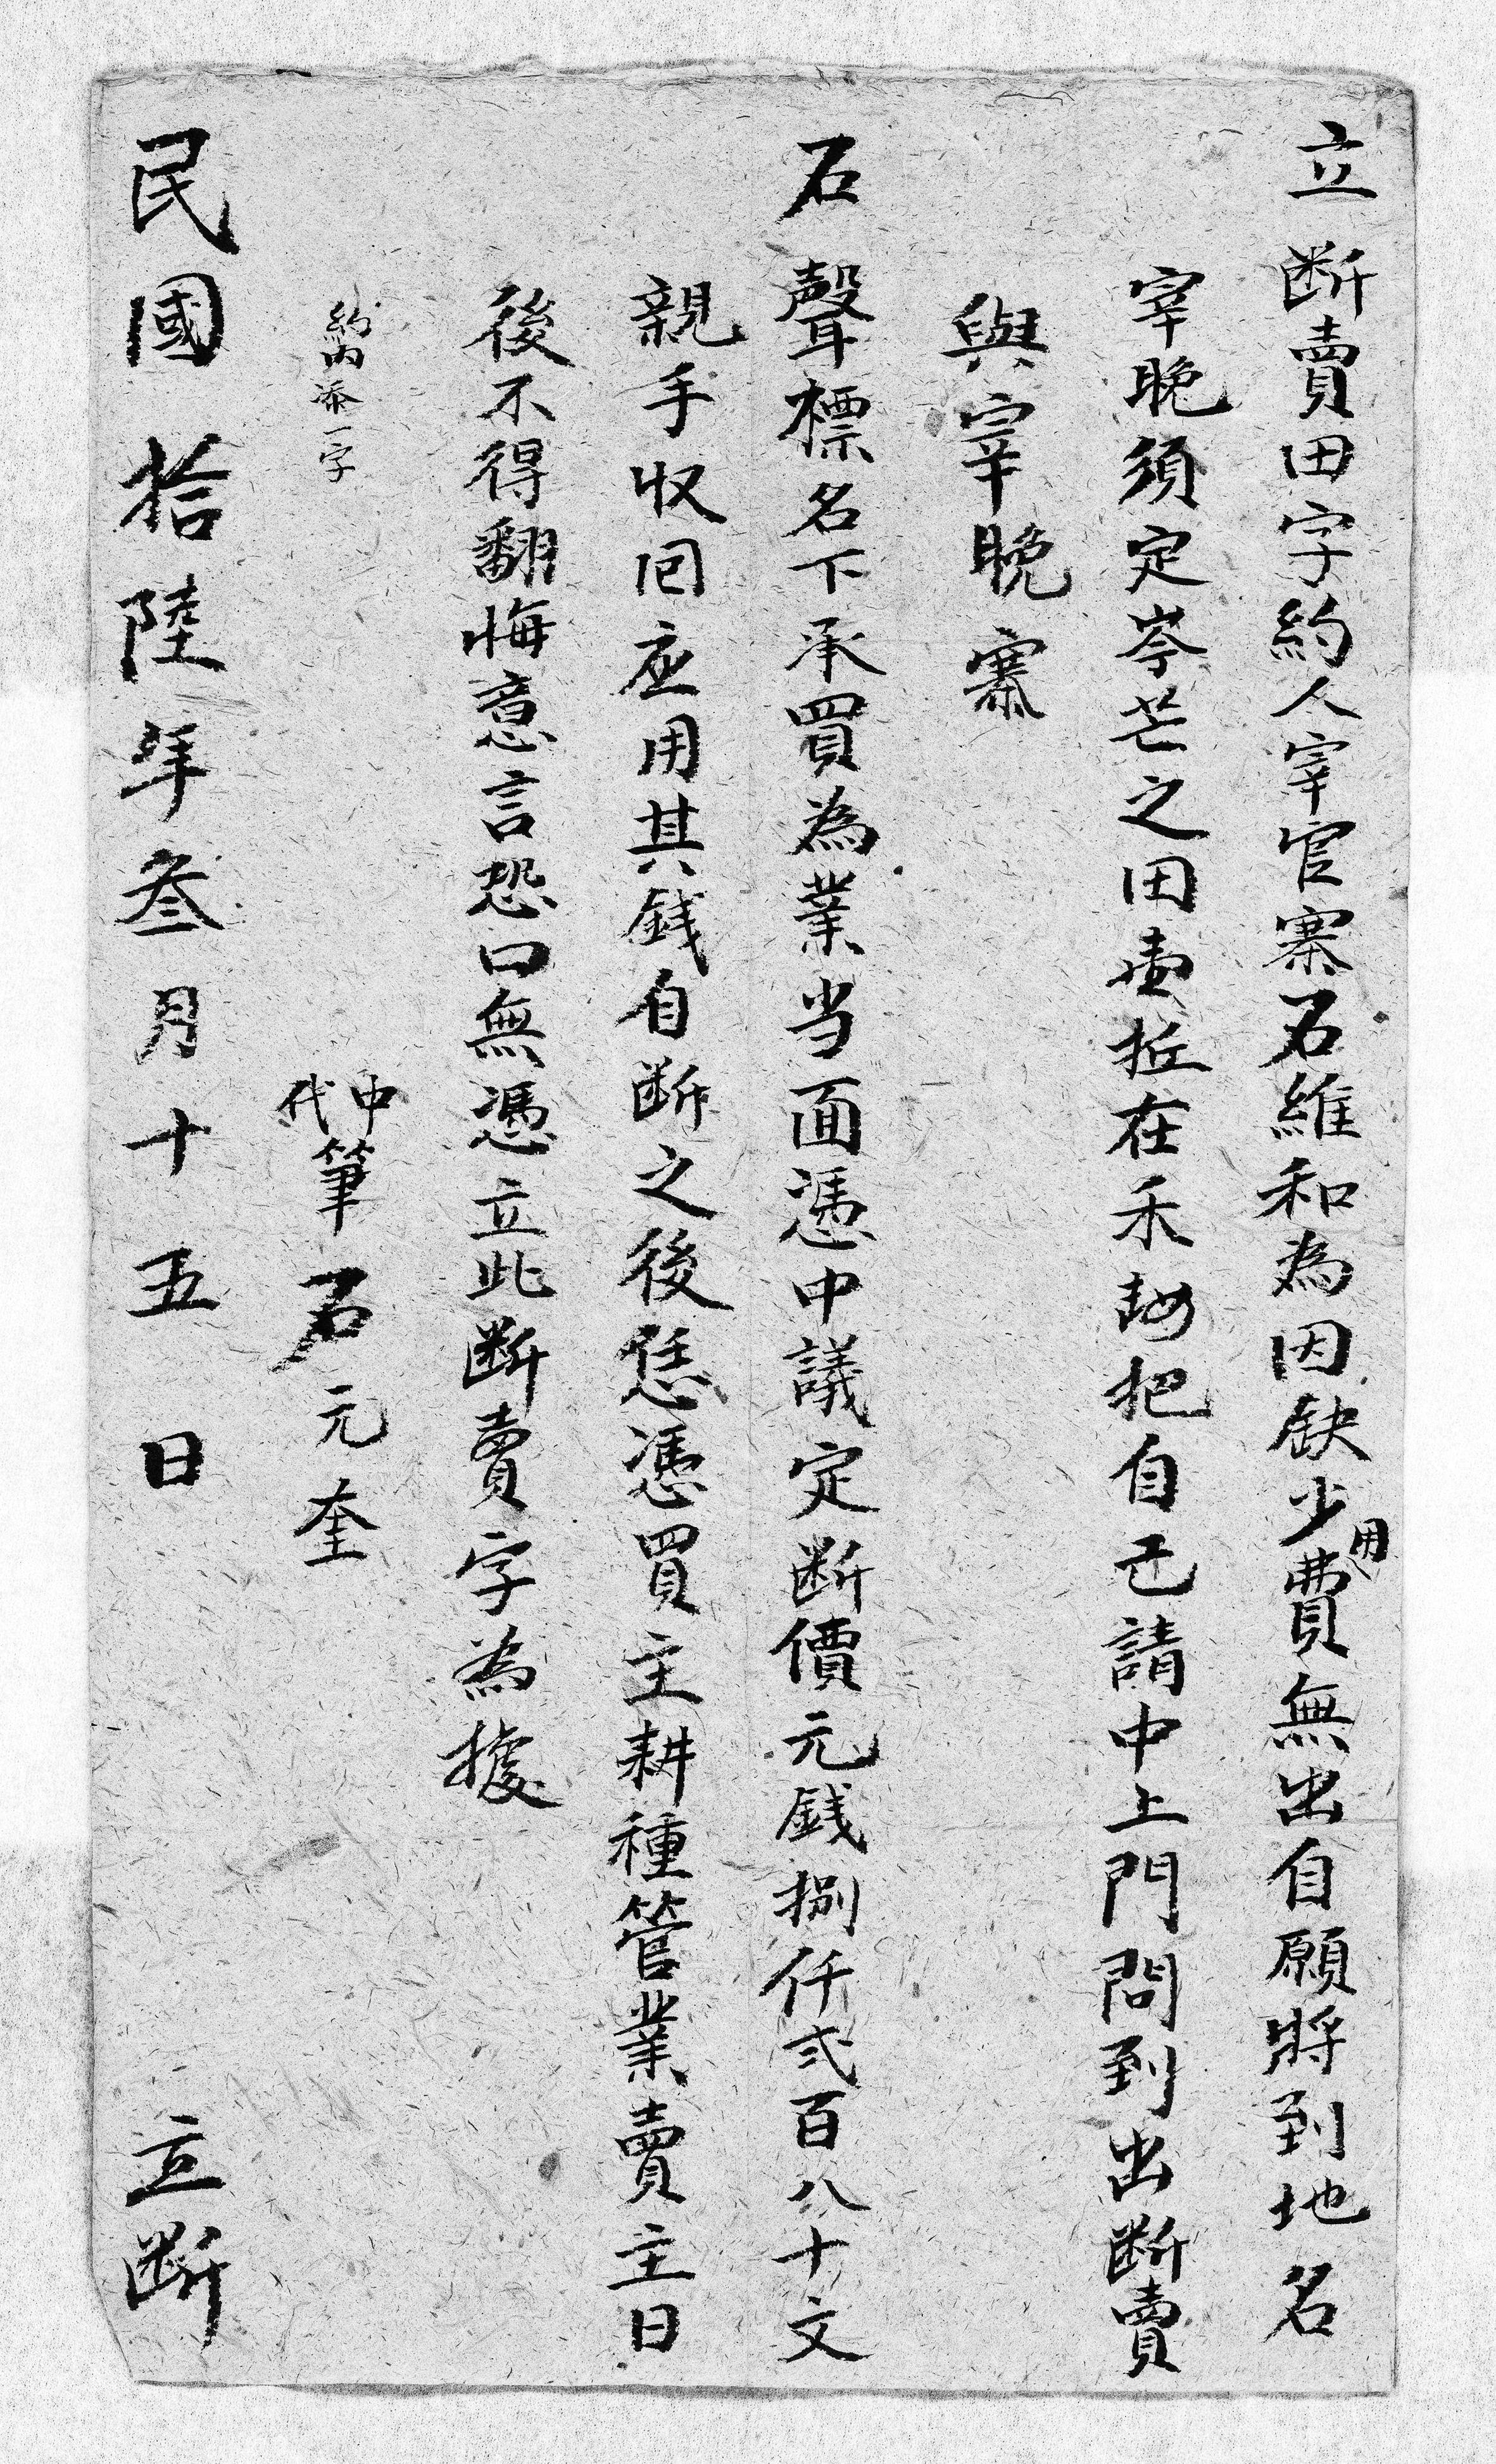 立断賣田字約人宰官寨石維和為因缺少費用無出自願將到地名
宰晚須定岑芒之田壹坵在禾把自己請中上門問到出断賣
與宰晚寨
石聲標名下承買為業当面憑中議定断價元銭捌仟弍百八十文
親手収回应用其銭自断之後恁憑買主耕種管業賣主日
後不得翻悔意言恐口無憑立此断賣字為據
約內添一字
中
代筆石元奎
民國拾陸年叁月十五日 立断